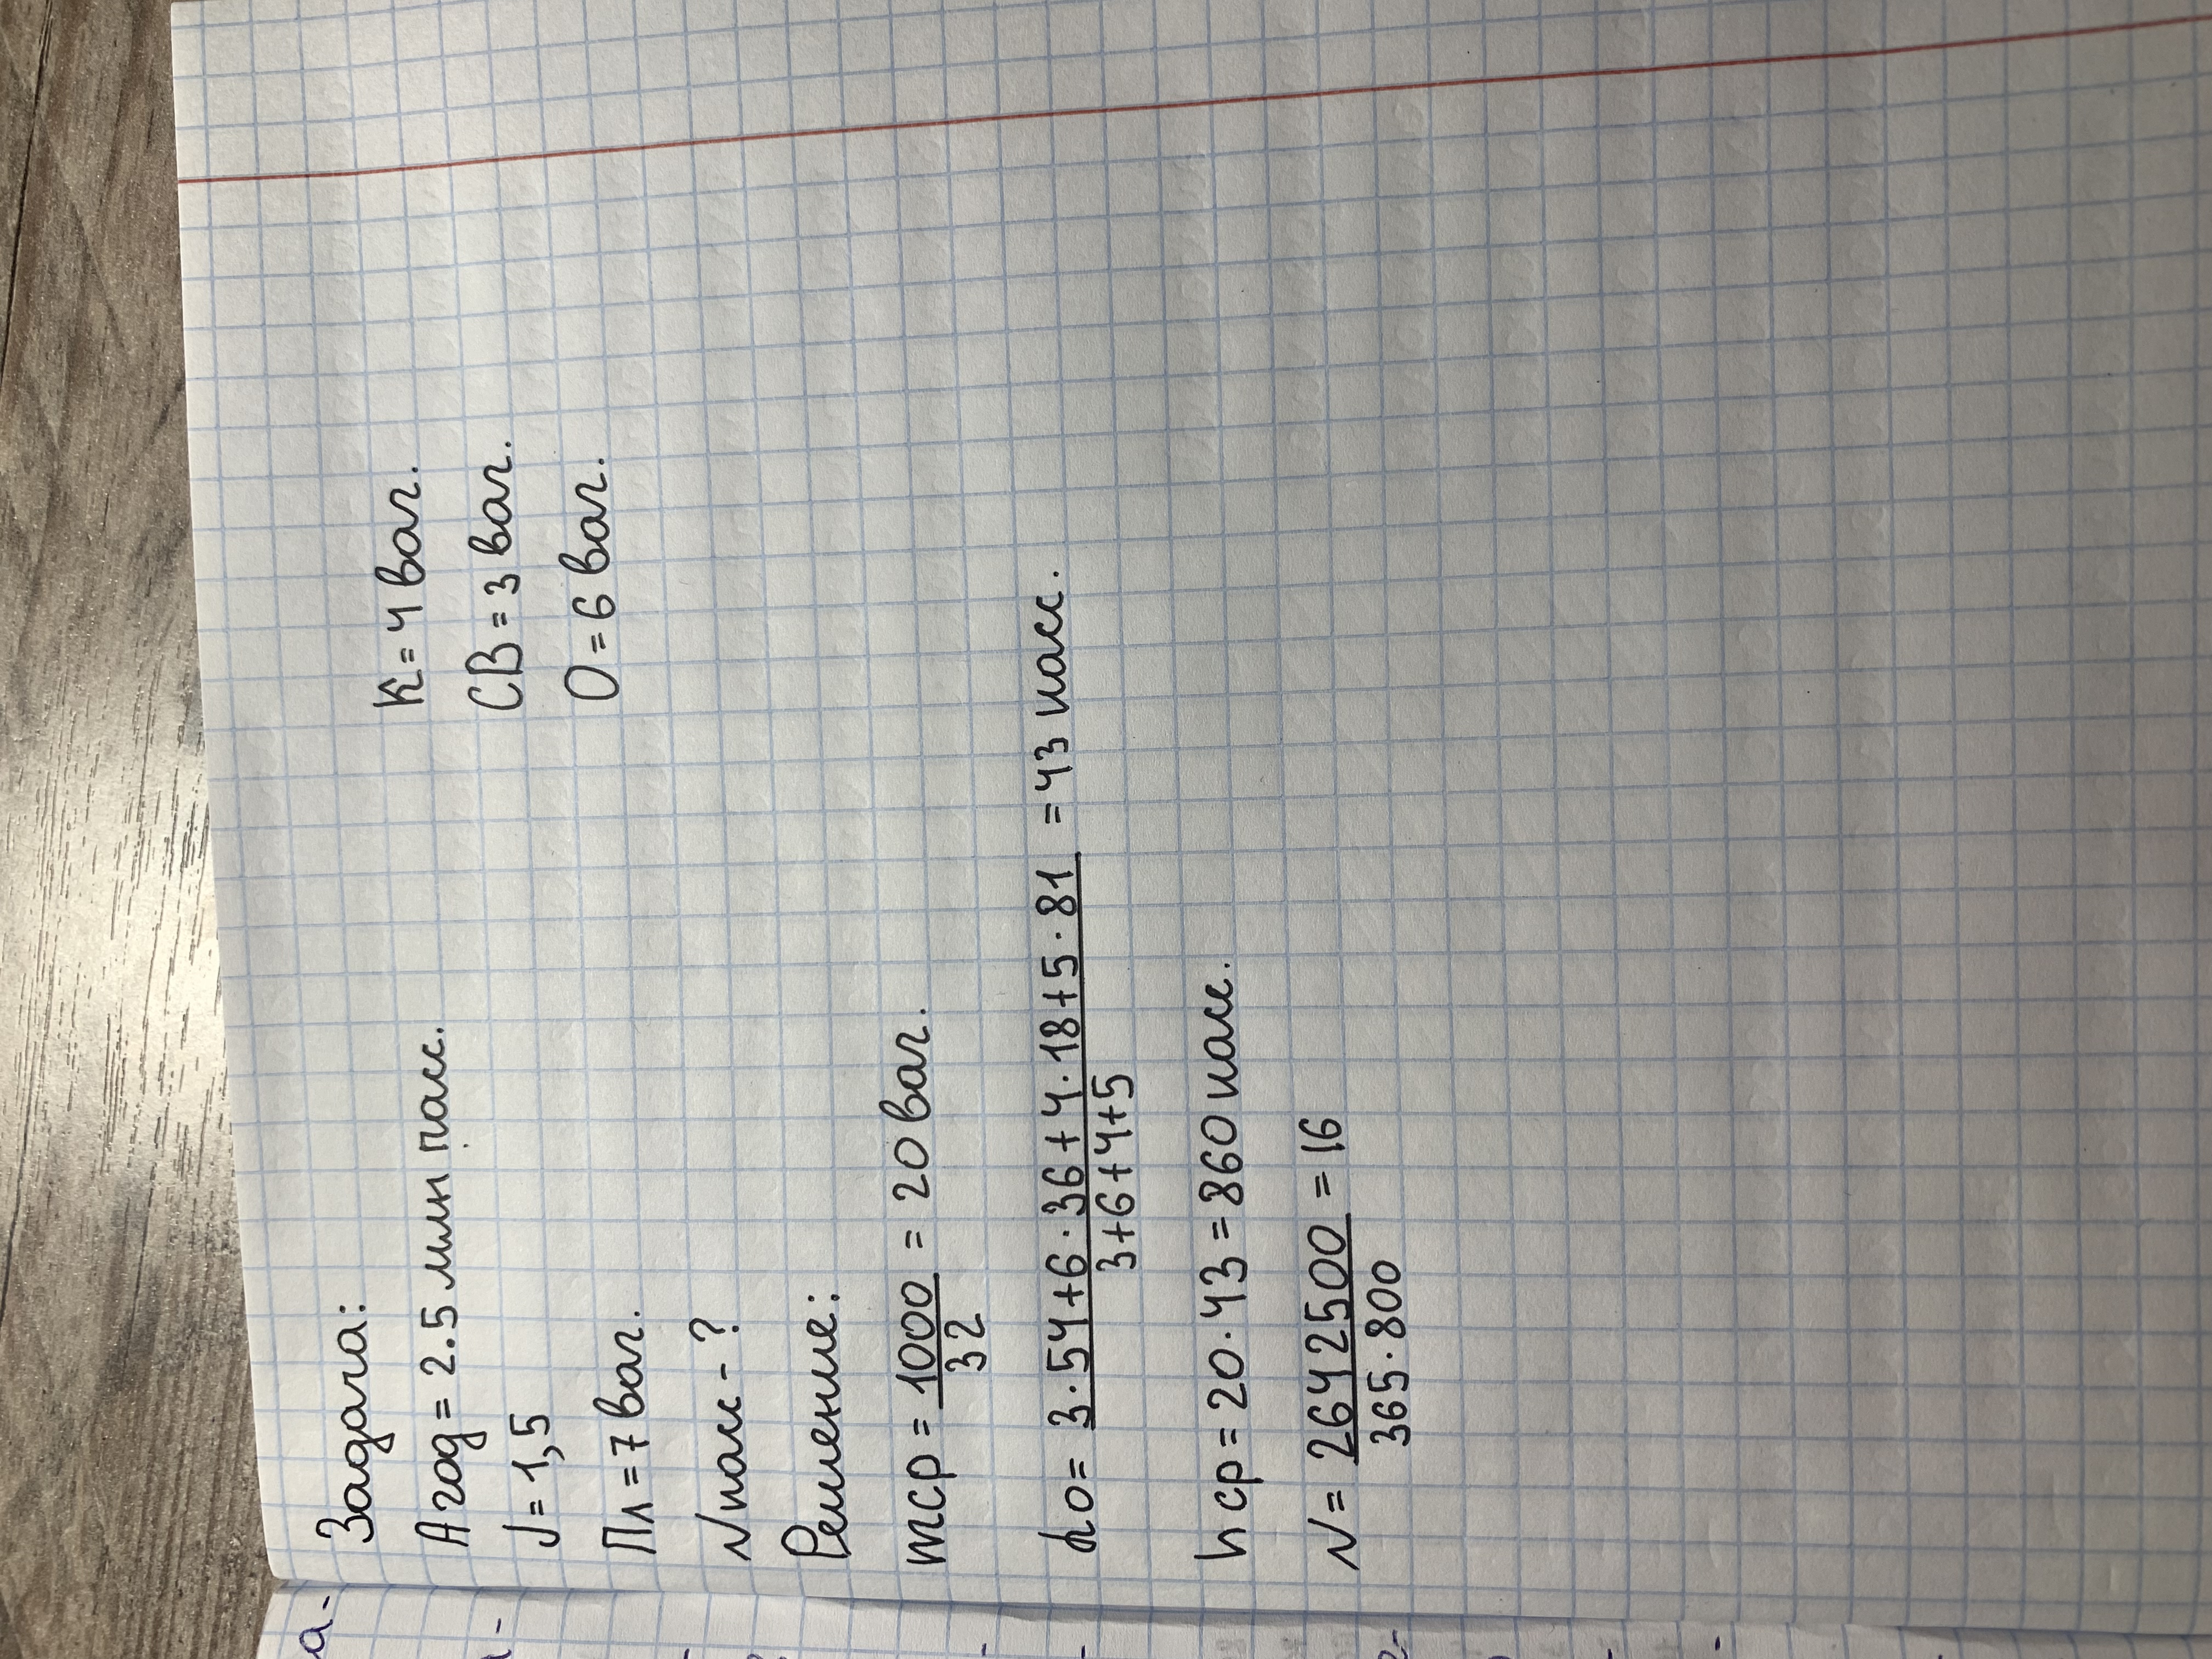 Задача:
Aгод = 2.5 млн пасс.
K = 4 ваг.
J = 1,5
СВ = 3 ваг.
Пл = 7 ваг.
О = 6 ваг.
Nпасс - ?
Решение:
mср = 1000/32 = 20 ваг.
do = 3·54+6·36+4·18+5·81/3+6+4+5 = 43 пасс.
hср = 20·43 = 860 пасс.
N = 2642500/365·800 = 16
а-